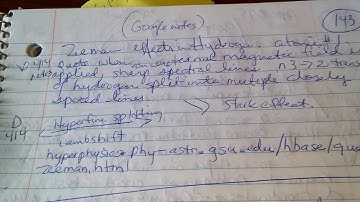 (Google notes)
143
Zeeman effects w/Hydrogen atomic #1
D 414 Quote when an external magnetic field is
notes applied, sharp spectral lines n3→2 trans
of hydrogen split into multiple closely
spaced lines. → Stark effect.
D 414 Hyperfine splitting
Lambshift
hyperphysics.phy-astr.gsu.edu/hbase/qua
Zeeman.html